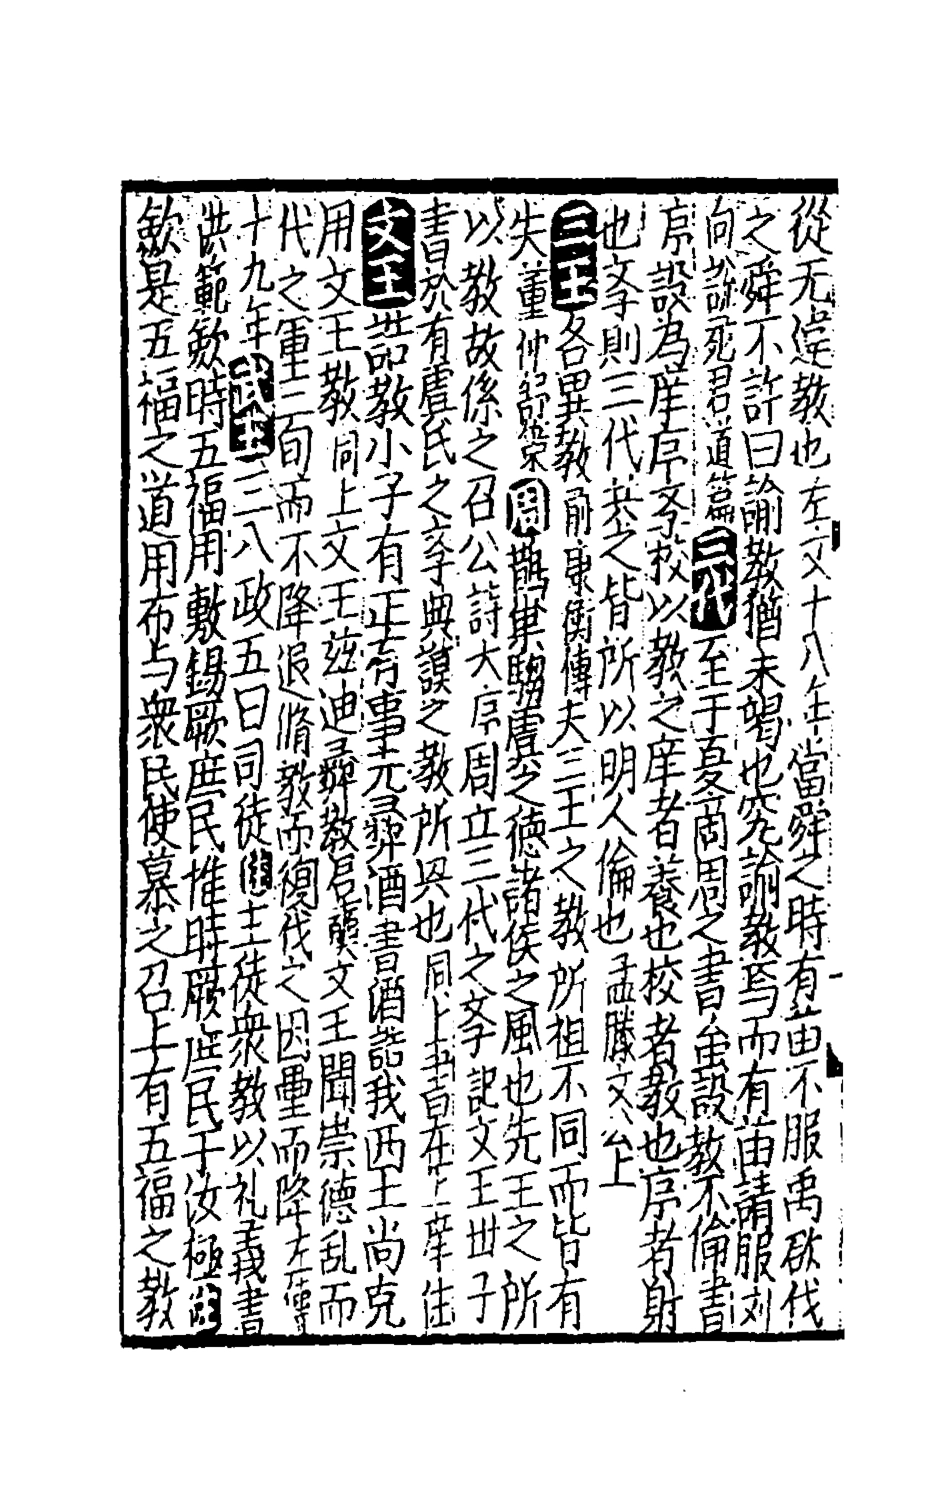 從无違教也左文十八年當舜之時有苗不服禹欲伐
之舜不許曰諭教猶未竭也究諭教焉而有苗請服刘
向說苑君道篇三代至于夏商周之書虽設教不倫書
序設為庠序孝校以教之庠者養也校者教也序者射
也孝則三代共之皆所以明人倫也孟滕文公上
三王各異教前康衡傳夫三王之教所祖不同而皆有
失董仲舒策周鵲巢騶虞之德諸侯之風也先王之所
以教故係之召公詩大序周立三代之孝記文王世子
書於有虞氏之孝典謨之教所兴也同上書在上庠注
文王誥教小子有正有事无彛酒書酒誥我西土尚克
用文王教同上文王兹迪彛教君奭文王聞崇德乱而
代之軍三旬而不降退脩教而復伐之因壘而降左僖
十九年武王三八政五曰司徒注主徒衆教以礼義書
洪範歛時五福用敷錫厥庶民惟時厥庶民于汝極注
歛是五福之道用布与衆民使慕之召上有五福之教